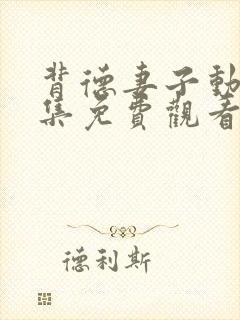 背德妻子動
集免費觀看
德利斯